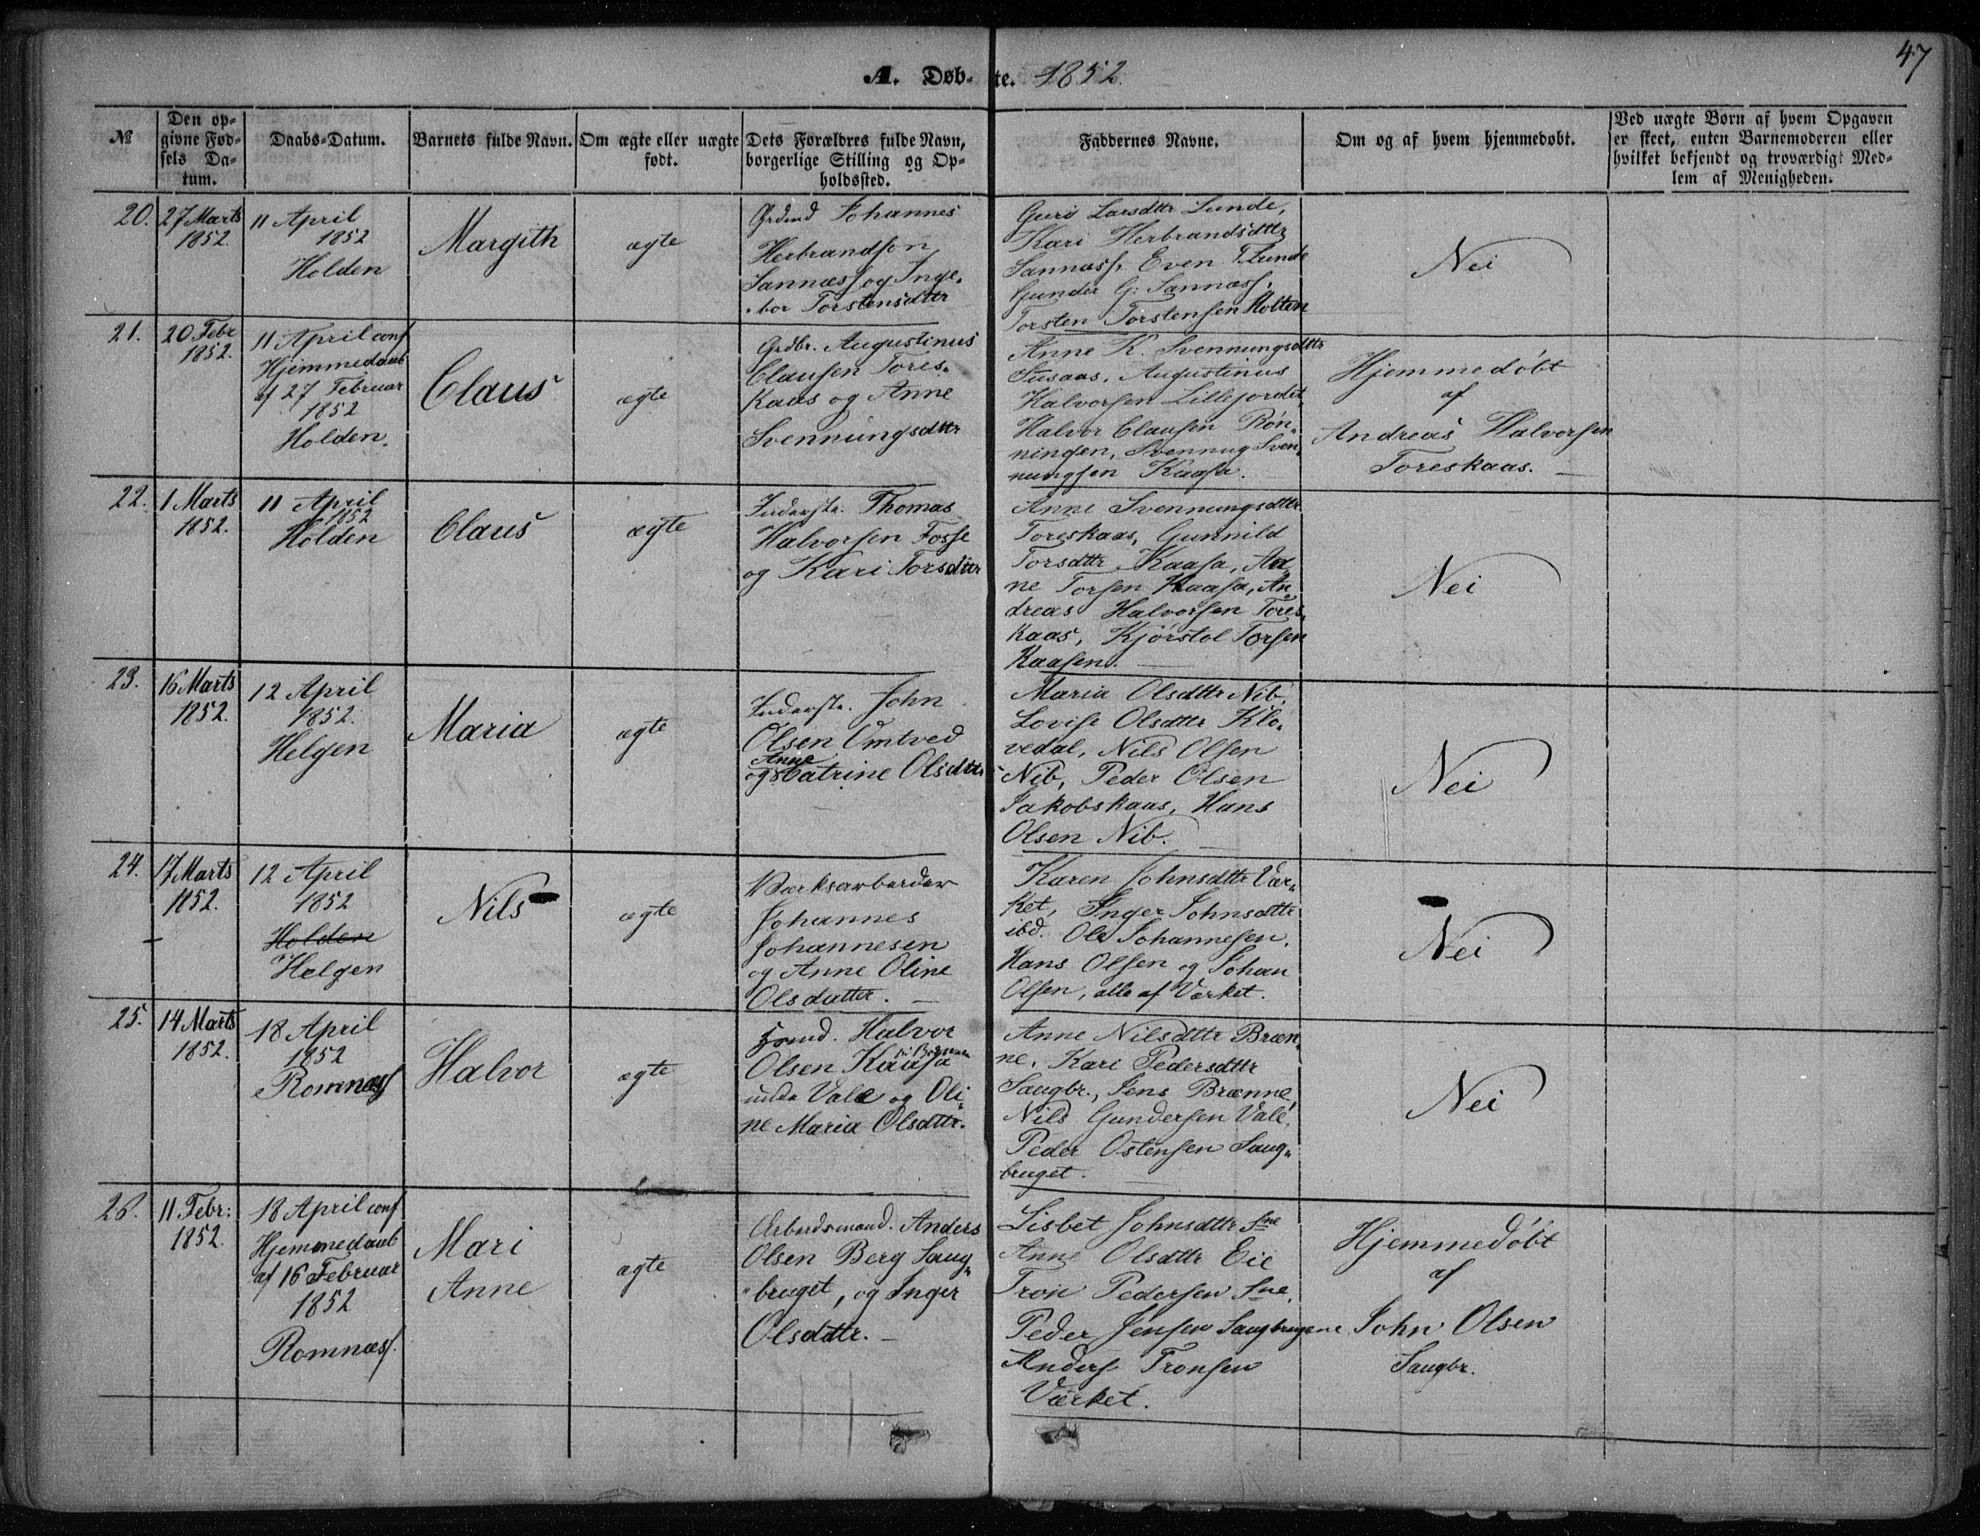 47
A. Døbte. 1852.
№
Den opgivne Fødsels Datum.
Daabs-Datum.
Barnets fulde Navn.
Om ægte eller uægte født.
Dets Forældres fulde Navn, borgerlige Stilling og Opholdssted.
Faddernes Navne.
Om og af hvem hjemmedøbt.
Ved uægte Børn af hvem Opgaven er skeet, enten Barnemoderen eller hvilket bekjendt og troværdigt Medlem af Menigheden.
20.
27 Marts
1852.
11 April
1852
Holden
Margith
ægte
Grdmd Johannes
Herbrandsen
Sannæss og Inge-
bor Torstensdttr
Guro Larsdttr Lunde,
Kari Herbrandsdttr
Sannæss, Even T. Lunde
Gunder G: Sannæss,
Torsten Torstensen Holten
Nei
21.
20 Febr
1852.
11 April conf
Hjemmedaab
af 27 Februar
1852
Holden.
Claus
ægte
Grdbr. Augustinus
Clausen Tores-
kaas og Anne
Svennungsdttr
Anne K. Svennungsdttr
Tusaas, Augustinus
Halvorsen Lillejordet,
Halvor Clausen Røn-
ningen, Svennug Sven-
nungsen Kaasa.
Hjemmedøbt
af
Andreas Halvorsen
Toreskaas.
22.
1 Marts
1852.
11 April
1852
Holden
Claus
ægte
Inderste. Thomas
Halvorsen Fosse
og Kari Torsdttr
Anne Svennungsdttr
Toreskaas, Gunnild
Torsdttr Kaasa, An-
ne Torsen Kaasa, An-
dreas Halvorsen Tores-
kaas, Kjørstol Torsen
Kaasen.
Nei
23.
16 Marts
1852.
12 April
1852.
Helgen
Maria
ægte
Inderste. John
Olsen Omtved
Anne
og Catrine Olsdttr
Maria Olsdttr Nib,
Lovise Olsdttr Klo-
vedal, Nils Olsen
Nib, Peder Olsen
Jakobskaas, Hans
Olsen Nib.
Nei
24.
17 Marts
1852.
12 April
1852
Holden
Helgen
Nils
ægte
Værksarbeider
Johannes
Johannesen
og Anne Oline
Olsdattr.
Karen Johnsdttr Vær-
ket, Inger Johnsdttr
ibd. Ole Johannesen,
Hans Olsen og Johan
Olsen, alle af Værket.
Nei
25.
14 Marts
1852.
18 April
1852
Romnæss
Halvor
ægte
Halvor
Olsen Kaasa
unde Vale og Oli-
ne Maria Olsdttr.
Anne Nilsdttr Bræn-
ne, Kari Pedersdttr
Saugbr., Jens Brænne,
Nils Gundersen Vale,
Peder Ostensen Saug-
bruget.
Nei
26.
11 Febr:
1852.
18 April conf
Hjemmedaab
af 16 Februar
1852
Romnæss.
Mari
Anne
ægte
Arbeidsmand. Anders
Olsen Berg Saug-
bruget, og Inger
Olsdttr.
Lisbet Johnsdttr Sne
Anne Olsdttr Eie
Tron Pedersen Sne,
Peder Jensen Saugbrugene
Anders Tronsen
Værket.
Hjemmedøbt
af
John Olsen
Saugbr.